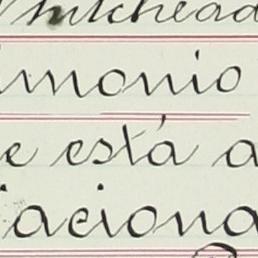 Whitehead
imonio
e está a
aciona